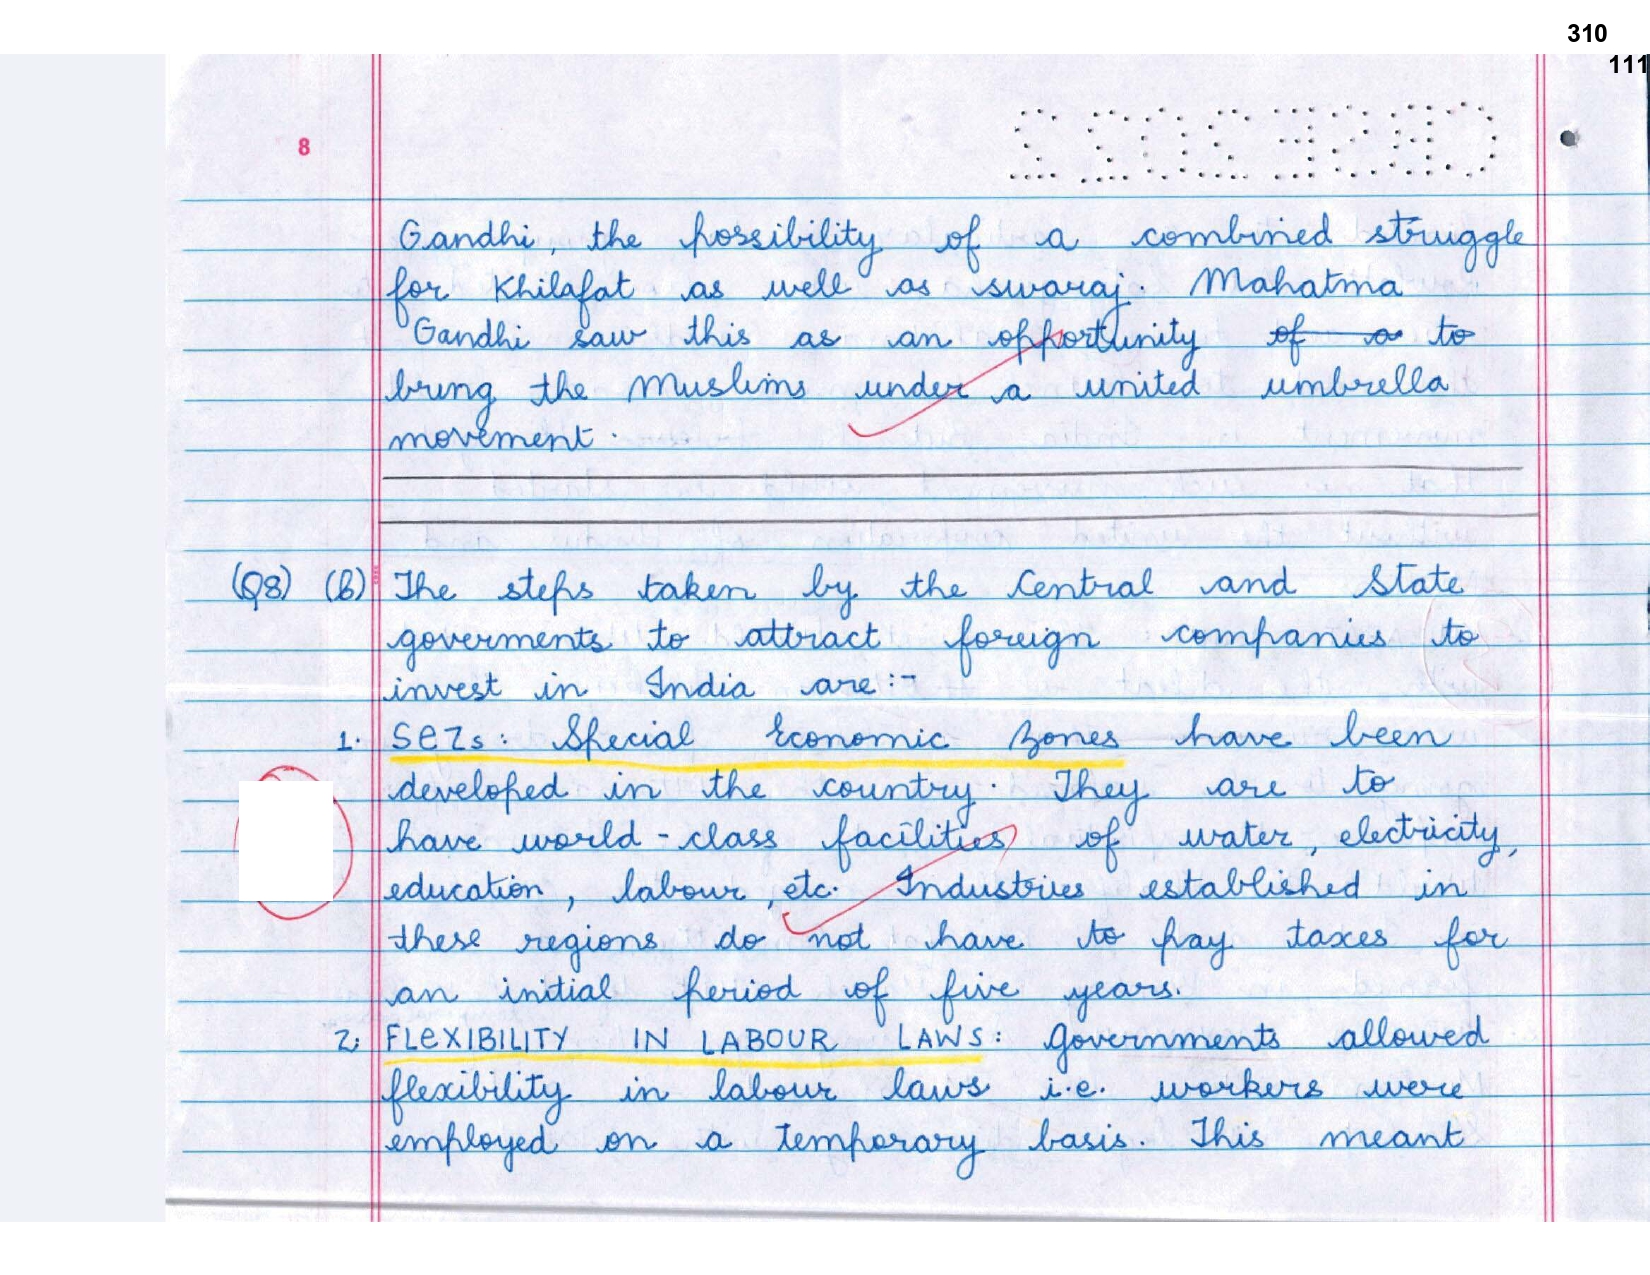 310
111
CBSE2022
8
Gandhi, the possibility of a combined struggle
for Khilafat as well as swaraj. Mahatma
Gandhi saw this as an opportunity of a to
bring the Muslims under a united umbrella
movement.
(Q8) (b) The steps taken by the Central and State
goverments to attract foreign companies to
invest in India are:-
1. SEZs: Special Economic Zones have been
developed in the country. They are to
have world-class facilities of water, electricity,
education, labour, etc. Industries established in
these regions do not have to pay taxes for
an initial period of five years.
2. FLEXIBILITY IN LABOUR LAWS: Governments allowed
flexibility in labour laws i.e. workers were
employed on a temporary basis. This meant